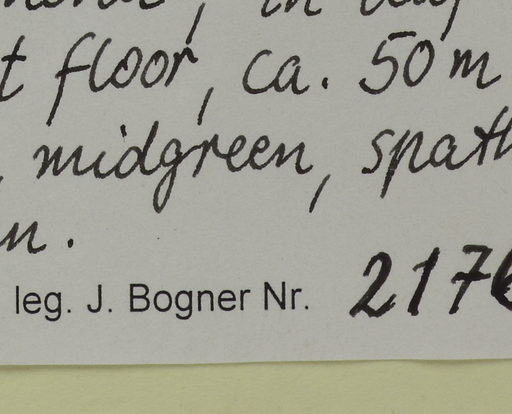 in
floor, ca. 50 m
midgreen, spath
leg. J. Bogner Nr. 2176